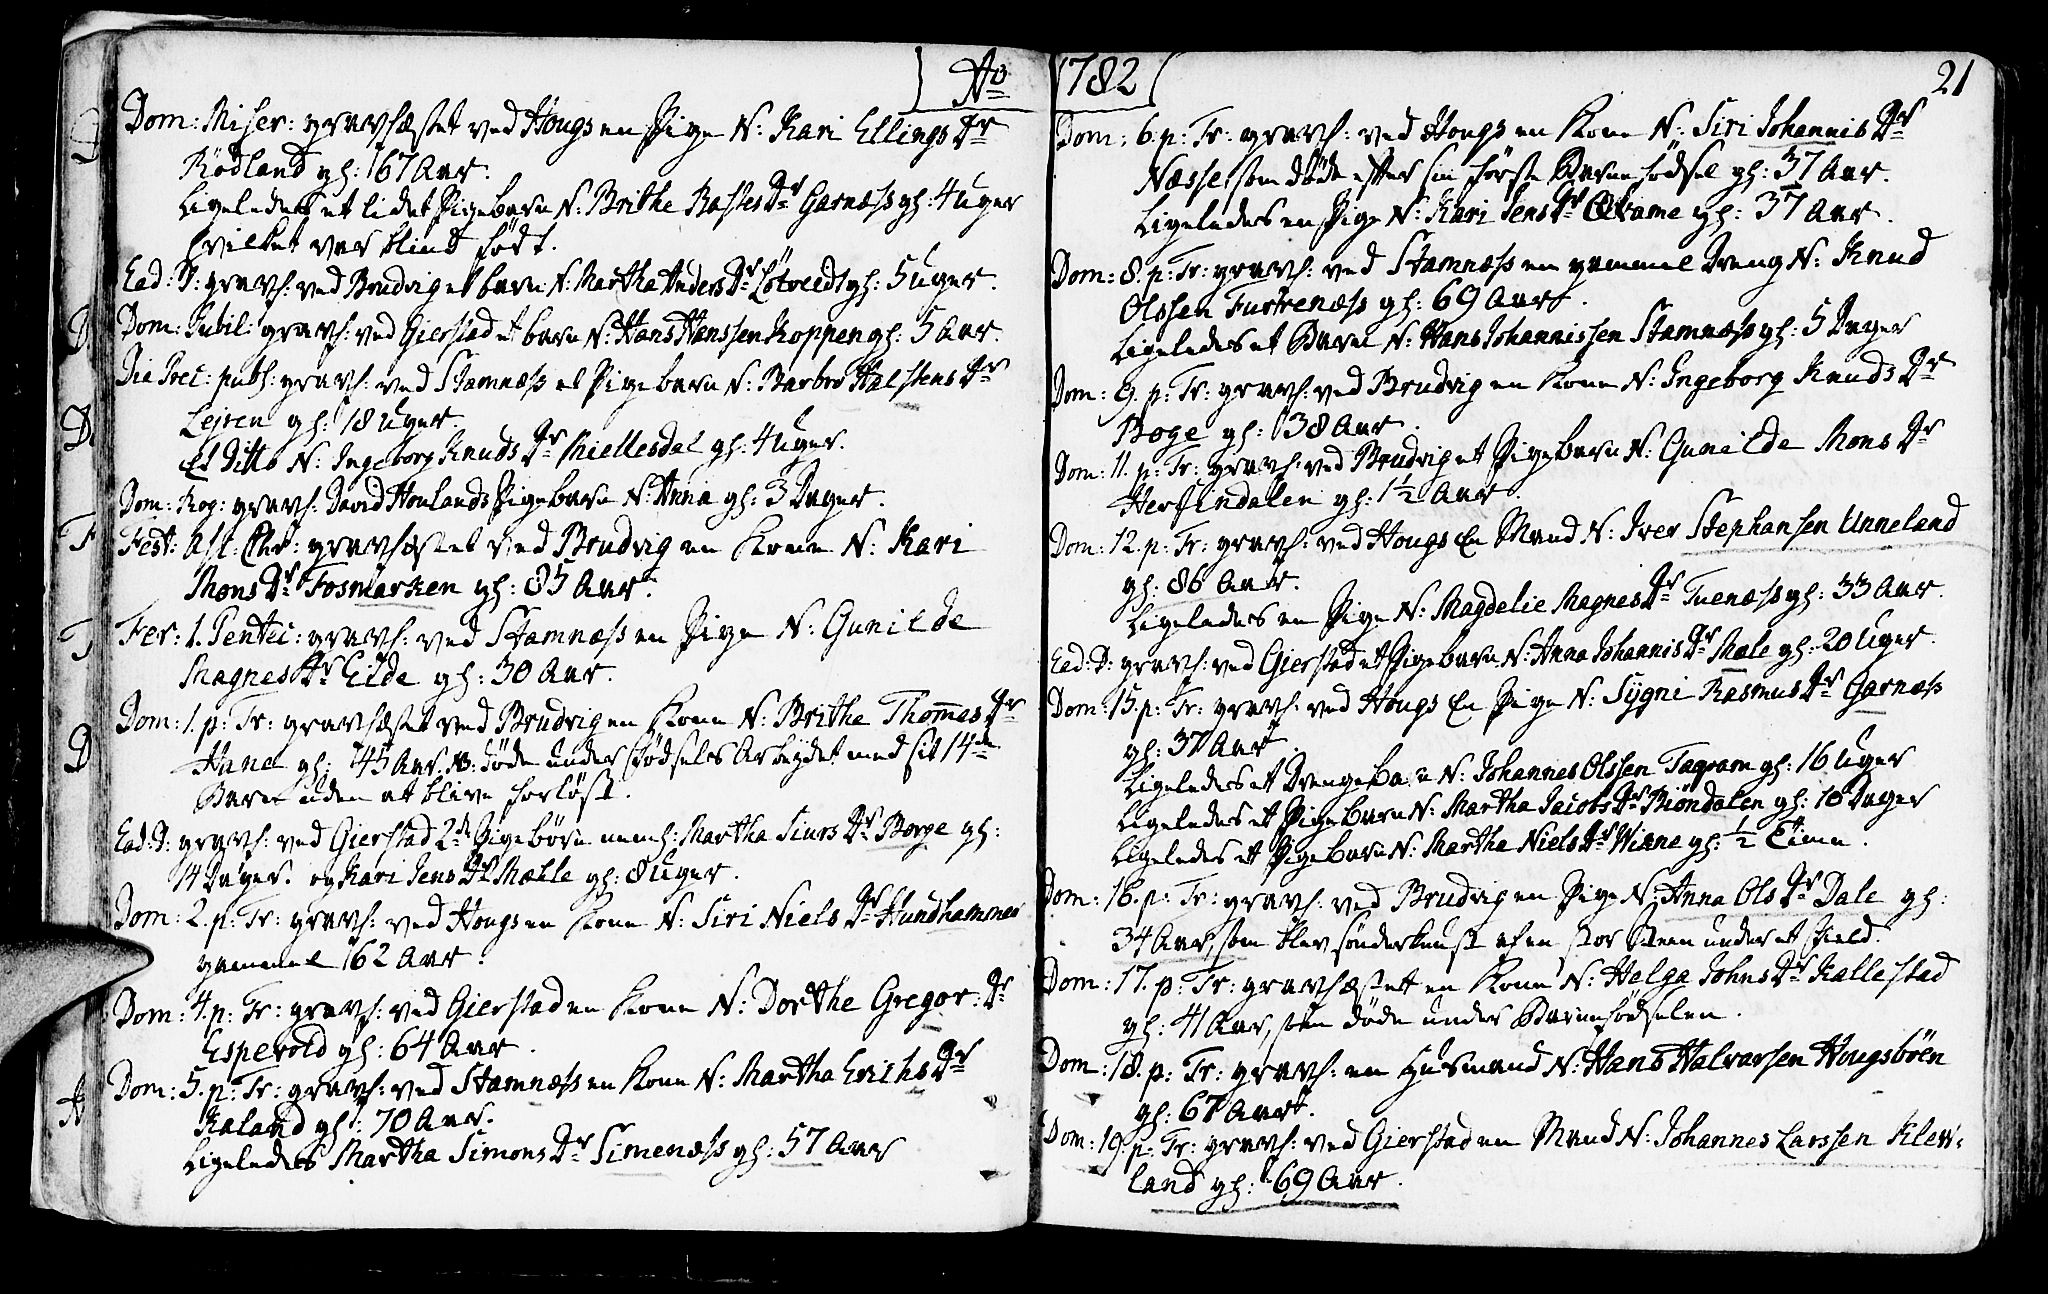 Ao 1782
21
Dom: Miser: gravfæstet ved Hougs en Pige N: Kari Ellings Dr
Rödland gl: 67 Aar.
Ligeledes et lidet Pigebarn N: Brithe Rastes Dr Garnæss gl: 4 Uger
hvilket var blind födt.
Ead: D: gravf: ved Brudvig et barn N: Martha Anders Dr Lötveedt gl: 5 Uger.
Dom: Jubil: gravf: ved Gierstad et barn N: Hans Hanssen Koppen gl: 5 Aar.
Die Prec: publ: gravf: ved Stamnæss et Pigebarn N: Barbro Halstens Dr
Lejren gl: 18 Uger.
Et Ditto N: Ingeborg Knuds Dr Hiellesdal gl: 4 Uger.
Dom: Rog: gravf: David Houlands Pigebarn N: Anna gl: 3 Dager.
Fest: Asc: Chr: gravfæstet ved Brudvig en Kone N: Kari
Mons Dr Fosmarken gl: 85 Aar.
Fer: 1. Pentec: gravf: ved Stamnæss en Pige N: Gunilde
Magnes Dr Eide gl: 30 Aar.
Dom: 1. p: Tr: gravfæstet ved Brudvig en Kone N: Brithe Thomas Dr
Hane gl: 45 Aar. NB. döde under Födsels Arbeydet med sit 14de
Barn uden at blive forlöst.
Ead: D: gravf: ved Gierstad 2de Pigebörn neml: Martha Siurs Dr Borge gl:
14 Dager. og Kari Jens Dr Mælle gl: 8 Uger.
Dom: 2. p: Tr: gravf: ved Hougs en Kone N: Siri Niels Dr Hundhammer
gammel 62 Aar.
Dom: 4. p: Tr: gravf: ved Gierstad en Kone N: Dorthe Gregor: Dr
Espevold gl: 64 Aar.
Dom: 5. p: Tr: gravf: ved Stamnæss en Kone N: Martha Erichs Dr
Kaland gl: 70 Aar.
Ligeledes Martha Simons Dr Simenæss gl: 57 Aar
Dom: 6. p: Tr: gravf: ved Hougs en Kone N: Siri Johannis Dr
Næsse, som döde efter sin förste Barnefödsel gl: 37 Aar.
Ligeledes en Pige N: Kari Jens Dr gl: 37 Aar.
Dom: 8. p: Tr: gravf: ved Stamnæss en gammel Dreng N: Knud
Olssen Furrenæss gl: 69 Aar.
Ligeledes et Barn N: Hans Johannissen Stamnæss gl: 5 Dager
Dom: 9. p: Tr: gravf: ved Brudvig en Kone N: Ingeborg Knuds Dr
Boge gl: 38 Aar.
Dom: 11. p: Tr: gravf: ved Brudvig et Pigebarn N: Gunilde Mons Dr
Herfindalen gl: 1 1/2 Aar.
Dom: 12. p: Tr: gravf: ved Hougs En Mand N: Iver Stephansen Unneland
gl: 86 Aar.
Ligeledes en Pige N: Magdelie Magnes Dr Tuenæss gl: 33 Aar.
Ead: D: gravf: ved Gierstad et Pigebarn N: Anna Johannis Dr Male gl: 20 Uger.
Dom: 15. p: Tr: gravf: ved Hougs En Pige N: Sygni Rasmus Dr Garnæss
gl: 37 Aar.
Ligeledes et Drengebarn N: Johannes Olssen Tagram gl: 16 Uger
Ligeledes et Pigebarn N: Martha Jacobs Dr Biöndalen gl: 10 Dager
Ligeledes et Pigebarn N: Marthe Niels Dr Wiene gl: 1/2 Time.
Dom: 16. p: Tr: gravf: ved Brudvig en Pige N: Anna Ols Dr Dale gl:
34 Aar, som blev sönderknust af en stor Steen under et Field.
Dom: 17. p: Tr: gravfæstet en Kone N: Helga Johns Dr Kallestad
gl: 41 Aar, som döde under Barnefödselen.
Dom: 18. p: Tr: gravf: en Husmand N: Hans Halvarsen Hougsböen
gl: 67 Aar.
Dom: 19. p: Tr: gravf: ved Gierstad en Mand N: Johannes Larssen Klew-
land gl: 69 Aar.